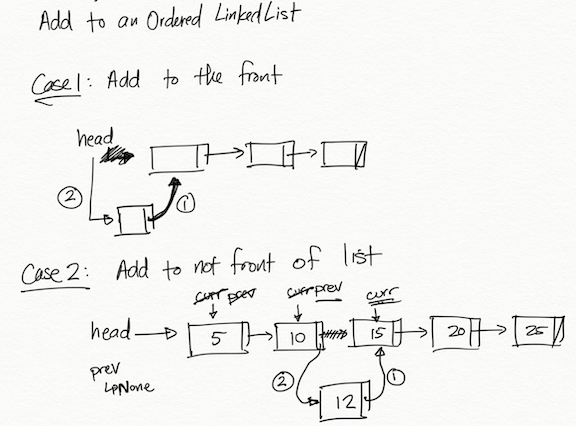 Add to an Ordered LinkedList
Case 1: Add to the front
head
②
①
Case 2: Add to not front of list
curr prev
curr prev
curr
head
5
10
15
20
25
prev
↳None
②
①
12